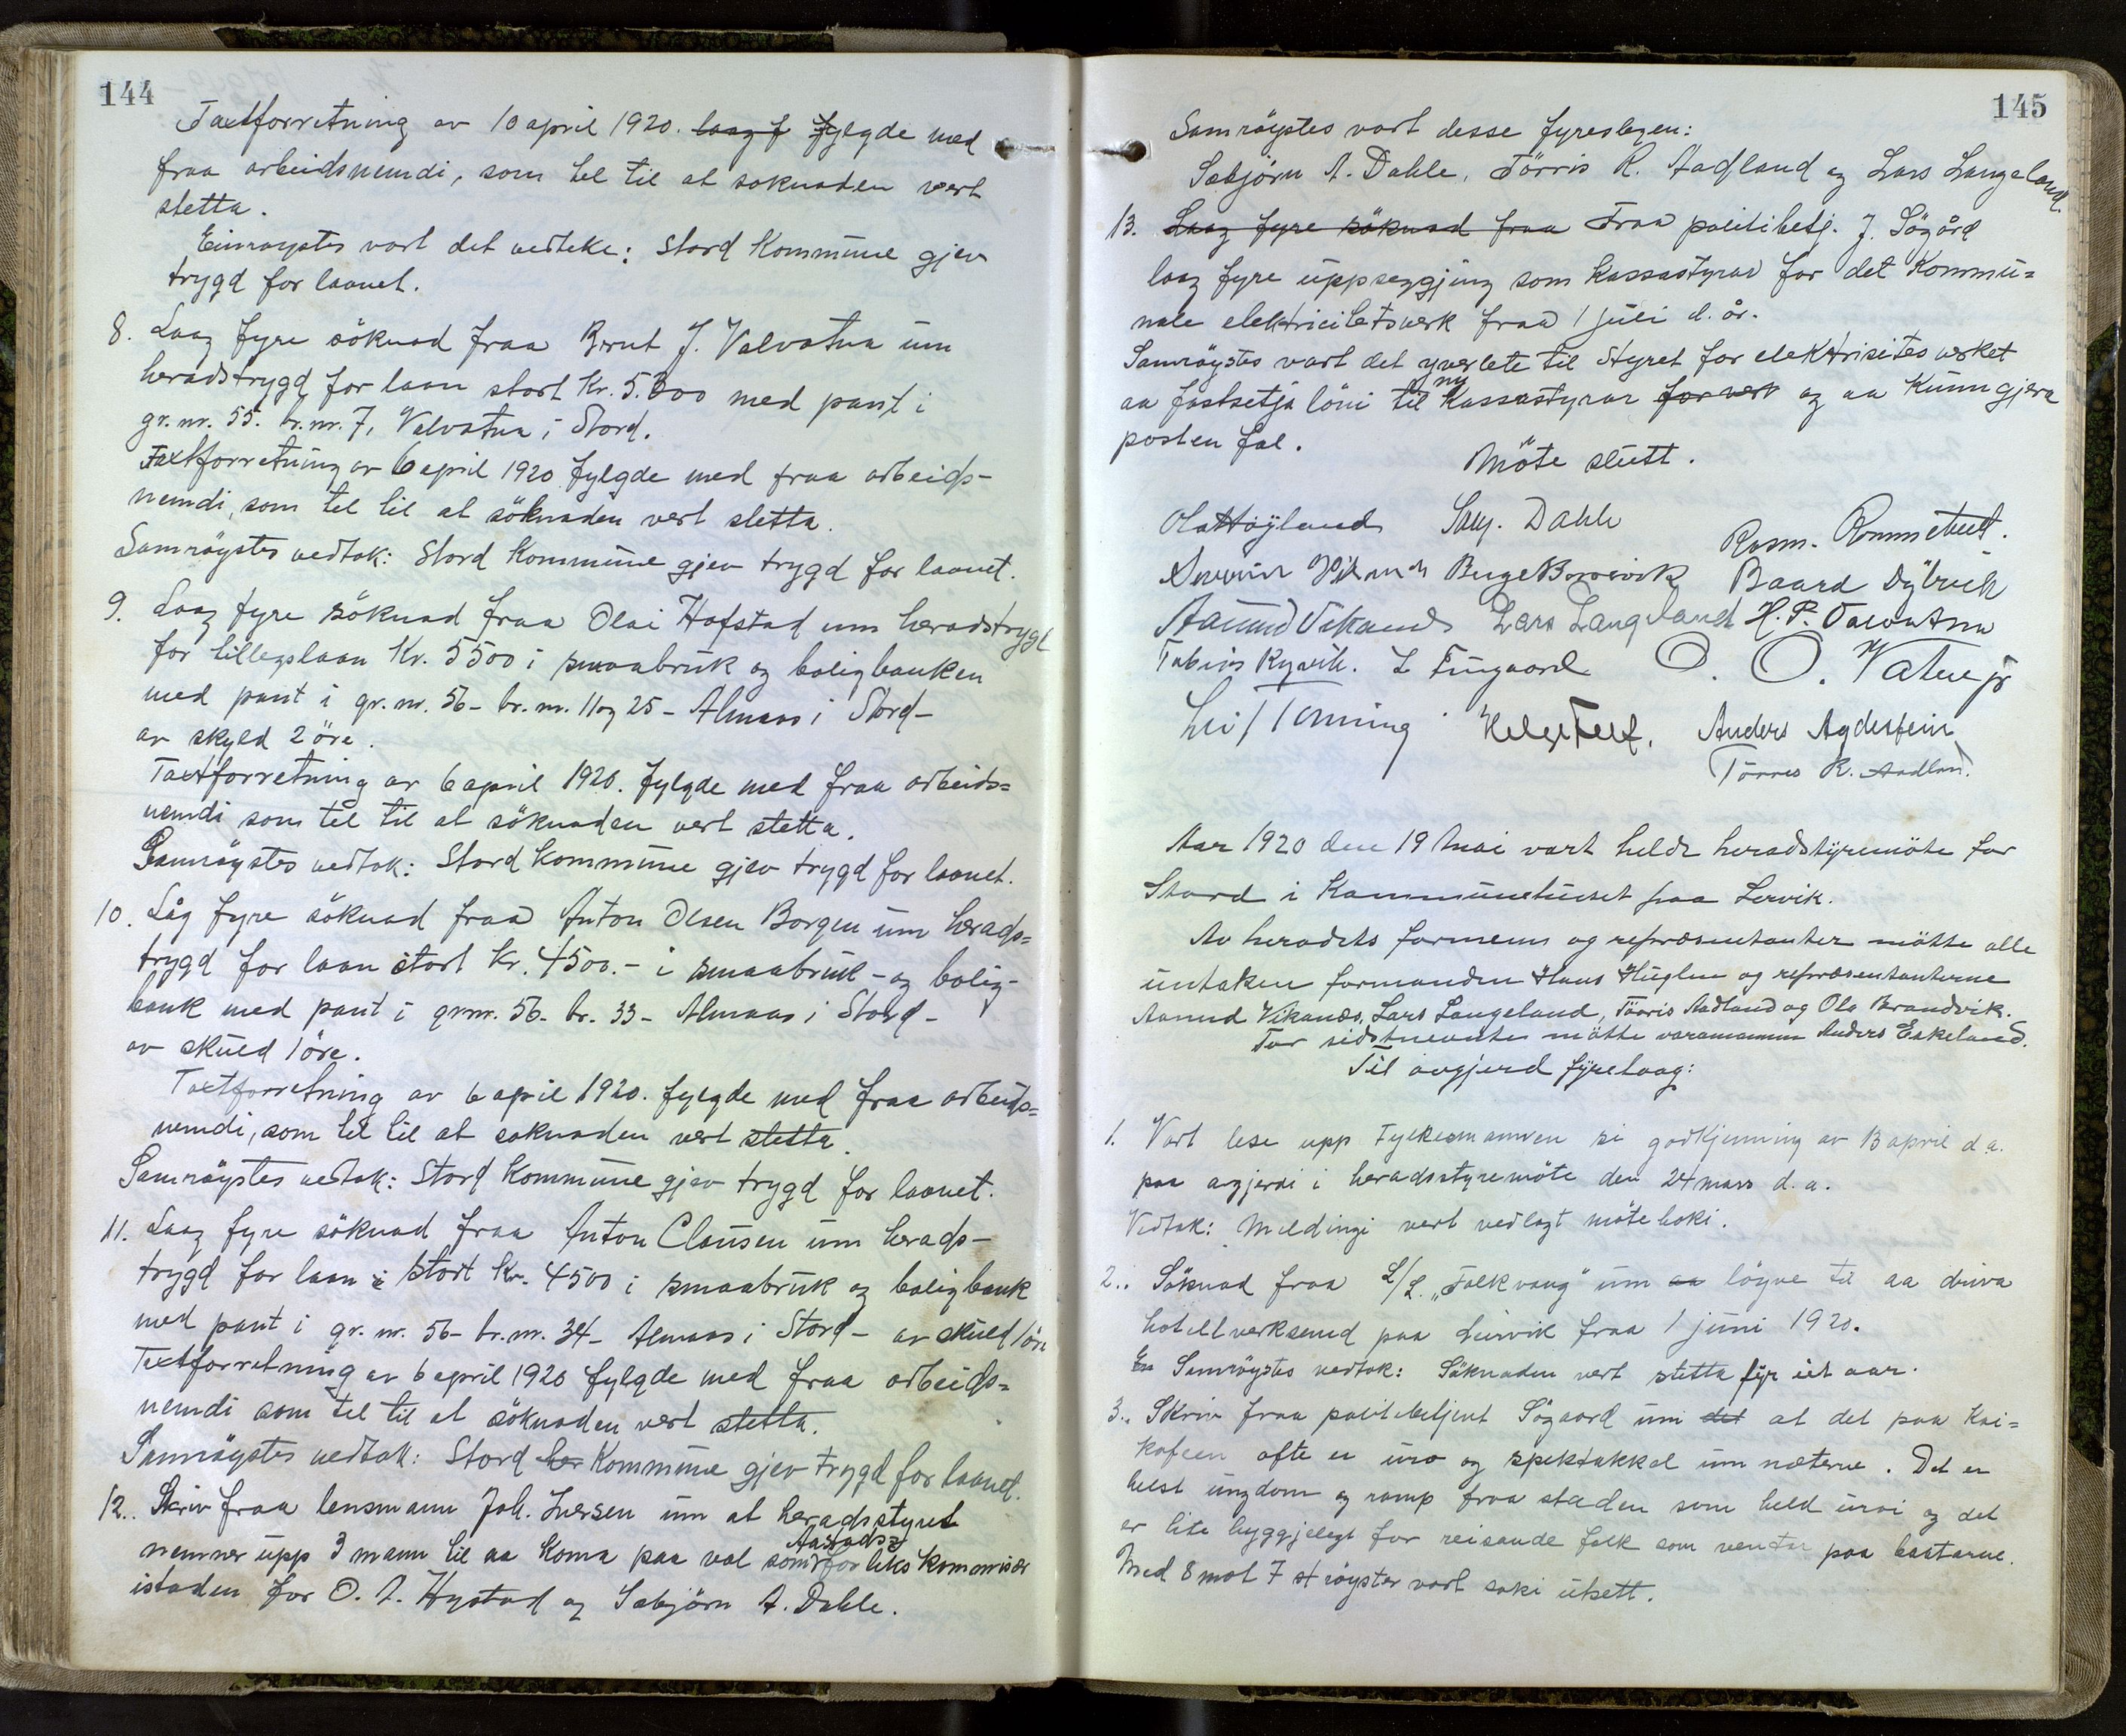 144
Taxtforretning av 10 april 1920. laag f fylgde med
fraa arbeidsnemdi, som tel til at soknaden vert
stetta.
Einrøystes vart det vedteke: Stord Kommune gjev
trygd for laanet.
8. Laag fyre söknad fraa Bernt J. Valvatna um
heradstrygd for laan stort Kr. 5.000 med pant i
gr. nr. 55. br. nr. 7, Valvatna i Stord.
Taxtforretning av 6 april 1920 fylgde med fraa arbeids-
nemdi, som tel til at söknaden vert stetta.
Samröystes vedtok: Stord Kommune gjev trygd for laanet.
9. Laag fyre söknad fraa Olai Hofstad um heradstrygd
for tillegslaan Kr. 5500 i smaabruk og boligbanken
med pant i gr. nr. 56 - br. nr. 11 og 25 - Almaas i Stord -
av skyld 2 öre.
Taxtforretning av 6 april 1920. fylgde med fraa arbeids=
nemdi som tel til at söknaden vert stetta.
Samröystes vedtok: Stord Kommune gjev trygd for laanet.
10. Låg fyre söknad fraa Anton Olsen Borgen um herads=
trygd for laan stort Kr. 4500.- i smaabruk - og bolig-
bank med pant i grnr. 56 - br. 33 - Almaas i Stord -
av skuld 1 öre.
Taxtforretning av 6 april 1920. fylgde med fraa arbeids=
nemdi, som tel til at soknaden vert stetta.
Samröystes vedtok: Stord Kommune gjev trygd for laanet.
11. Laag fyre söknad fraa Anton Clausen um herads-
trygd for laan i stort Kr. 4500 i smaabruk og boligbank
med pant i gr. nr. 56 - br. nr. 34 - Almaas i Stord - av skuld 1 öre
Taxtforretning av 6 april 1920 fylgde med fraa arbeids=
nemdi som tel til at söknaden vert stetta.
Samröystes vedtok: Stord her Kommune gjev trygd for laanet.
12.. Skriv fraa lensmann Joh. Iversen um at heradsstyret
nemner upp 3 mann til aa koma paa val som forliks kommisær
istaden for O. A. Hystad og Sæbjörn A. Dahle.
145
Samröystes vart desse fyreslegen:
Sæbjörn A. Dahle, Törris R. Aadland og Lars Langeland.
13. Laag fyre söknad fraa Fraa politibetj. J. Sögård
laag fyre uppseggjing som kassastyrar for det Kommu=
nale elektricitetsverk fraa 1 juli d. år.
Samröystes vart det yverlete til Styret for elektrisitetsverket
aa fastsetja löni til ny Kassastyrar for verk og aa kunngjera
posten fal.
Möte slutt.
Olat Höyland Sæg. Dahle
Rasm. Rommetveit.
Birge Borrevik Baard Dybvik
Aamund Vikanes Lars Langeland H. P. Valvatna
Tobias Rysvik. L Tingaard O. O. Vatne jr
Helge Tveit. Anders Agdestein
Törres R. Aadlan.
Aar 1920 den 19 Mai vart helde heradstyremöte for
Stord i Kommunehuset paa Lervik.
Av heradets formenn og repræsentanter mötte alle
untaken formanden Hans Huglen og repræsentanterne
Aamund Vikanes, Lars Langeland, Törris Aadland og Ola Brandvik.
For sidstnevnte mötte varamannen Anders Eskeland.
Til avgjerd fyrelaag:
1. Vart lese upp Fylkesmannen si godkjenning av 13 april d a.
paa avgjerdi i heradsstyremöte den 24 mars d. a.
Vedtak: Meldingi vert vedlagt möteboki.
2.. Söknad fraa L/L. "Folkvang" um aa löyve til aa driva
hotellverksemd paa Leirvik fraa 1 juni 1920.
En Samröystes vedtok: Söknaden vert stetta fyr eit aar.
3.. Skriv fraa politibetjent Sögaard um det at det paa Kai=
kafeen ofte er uro og spektakkel um næterne. Det er
helst ungdom og ramp fraa staden som held uroi og det
er lite hyggjelegt for reisande folk som ventar paa baatarne.
Med 8 mot 7 st röyster vart saki utsett.